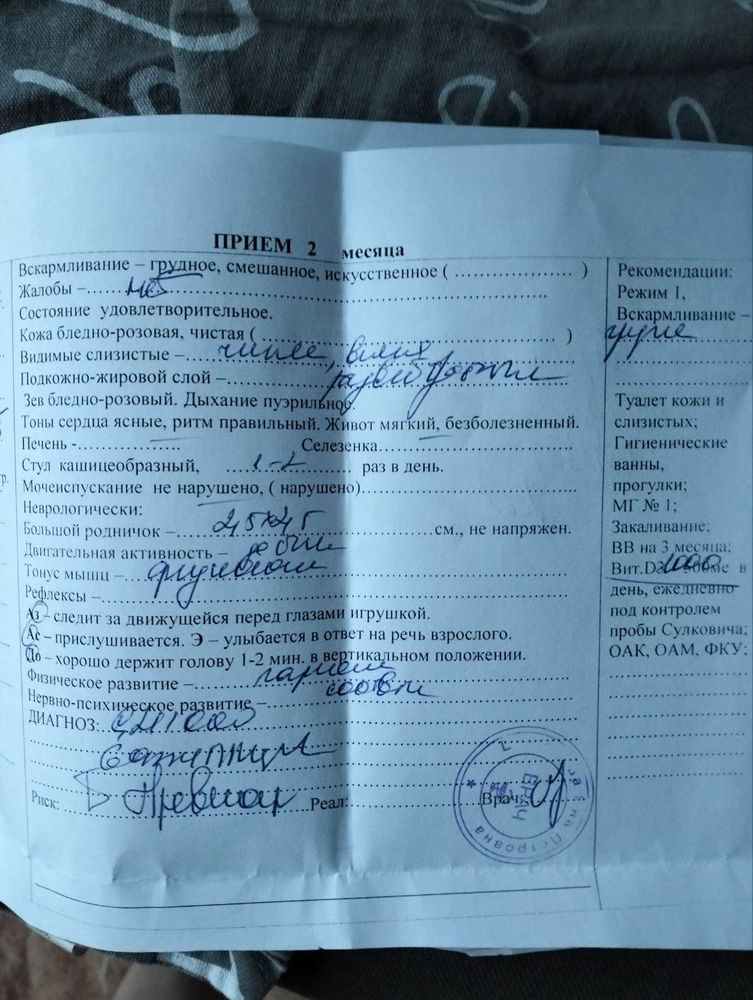 ПРИЕМ 2 месяца
Вскармливание – грудное, смешанное, искусственное ( .................... )
Жалобы –
Состояние удовлетворительное.
Кожа бледно-розовая, чистая ( .................... )
Видимые слизистые – чистые, влаж
Подкожно-жировой слой – развит
Зев бледно-розовый. Дыхание пуэрильное.
Тоны сердца ясные, ритм правильный. Живот мягкий, безболезненный.
Печень -.................... Селезенка....................
Стул кашицеобразный, 1-2 раз в день.
Мочеиспускание не нарушено, ( нарушено)....................
Неврологически:
Большой родничок – 2,5х2,5 см., не напряжен.
Двигательная активность –
Тонус мышц –
Рефлексы –....................
Аз – следит за движущейся перед глазами игрушкой.
Ас – прислушивается. Э – улыбается в ответ на речь взрослого.
До – хорошо держит голову 1-2 мин. в вертикальном положении.
Физическое развитие –
Нервно-психическое развитие – соотв
ДИАГНОЗ:
Риск: Реал: Врач
Рекомендации:
Режим 1,
Вскармливание –
Туалет кожи и
слизистых;
Гигиенические
ванны,
прогулки;
МГ № 1;
Закаливание;
ВВ на 3 месяца;
Вит.D3 1000 в
день, ежедневно
под контролем
пробы Сулковича;
ОАК, ОАМ, ФКУ;
Петровна